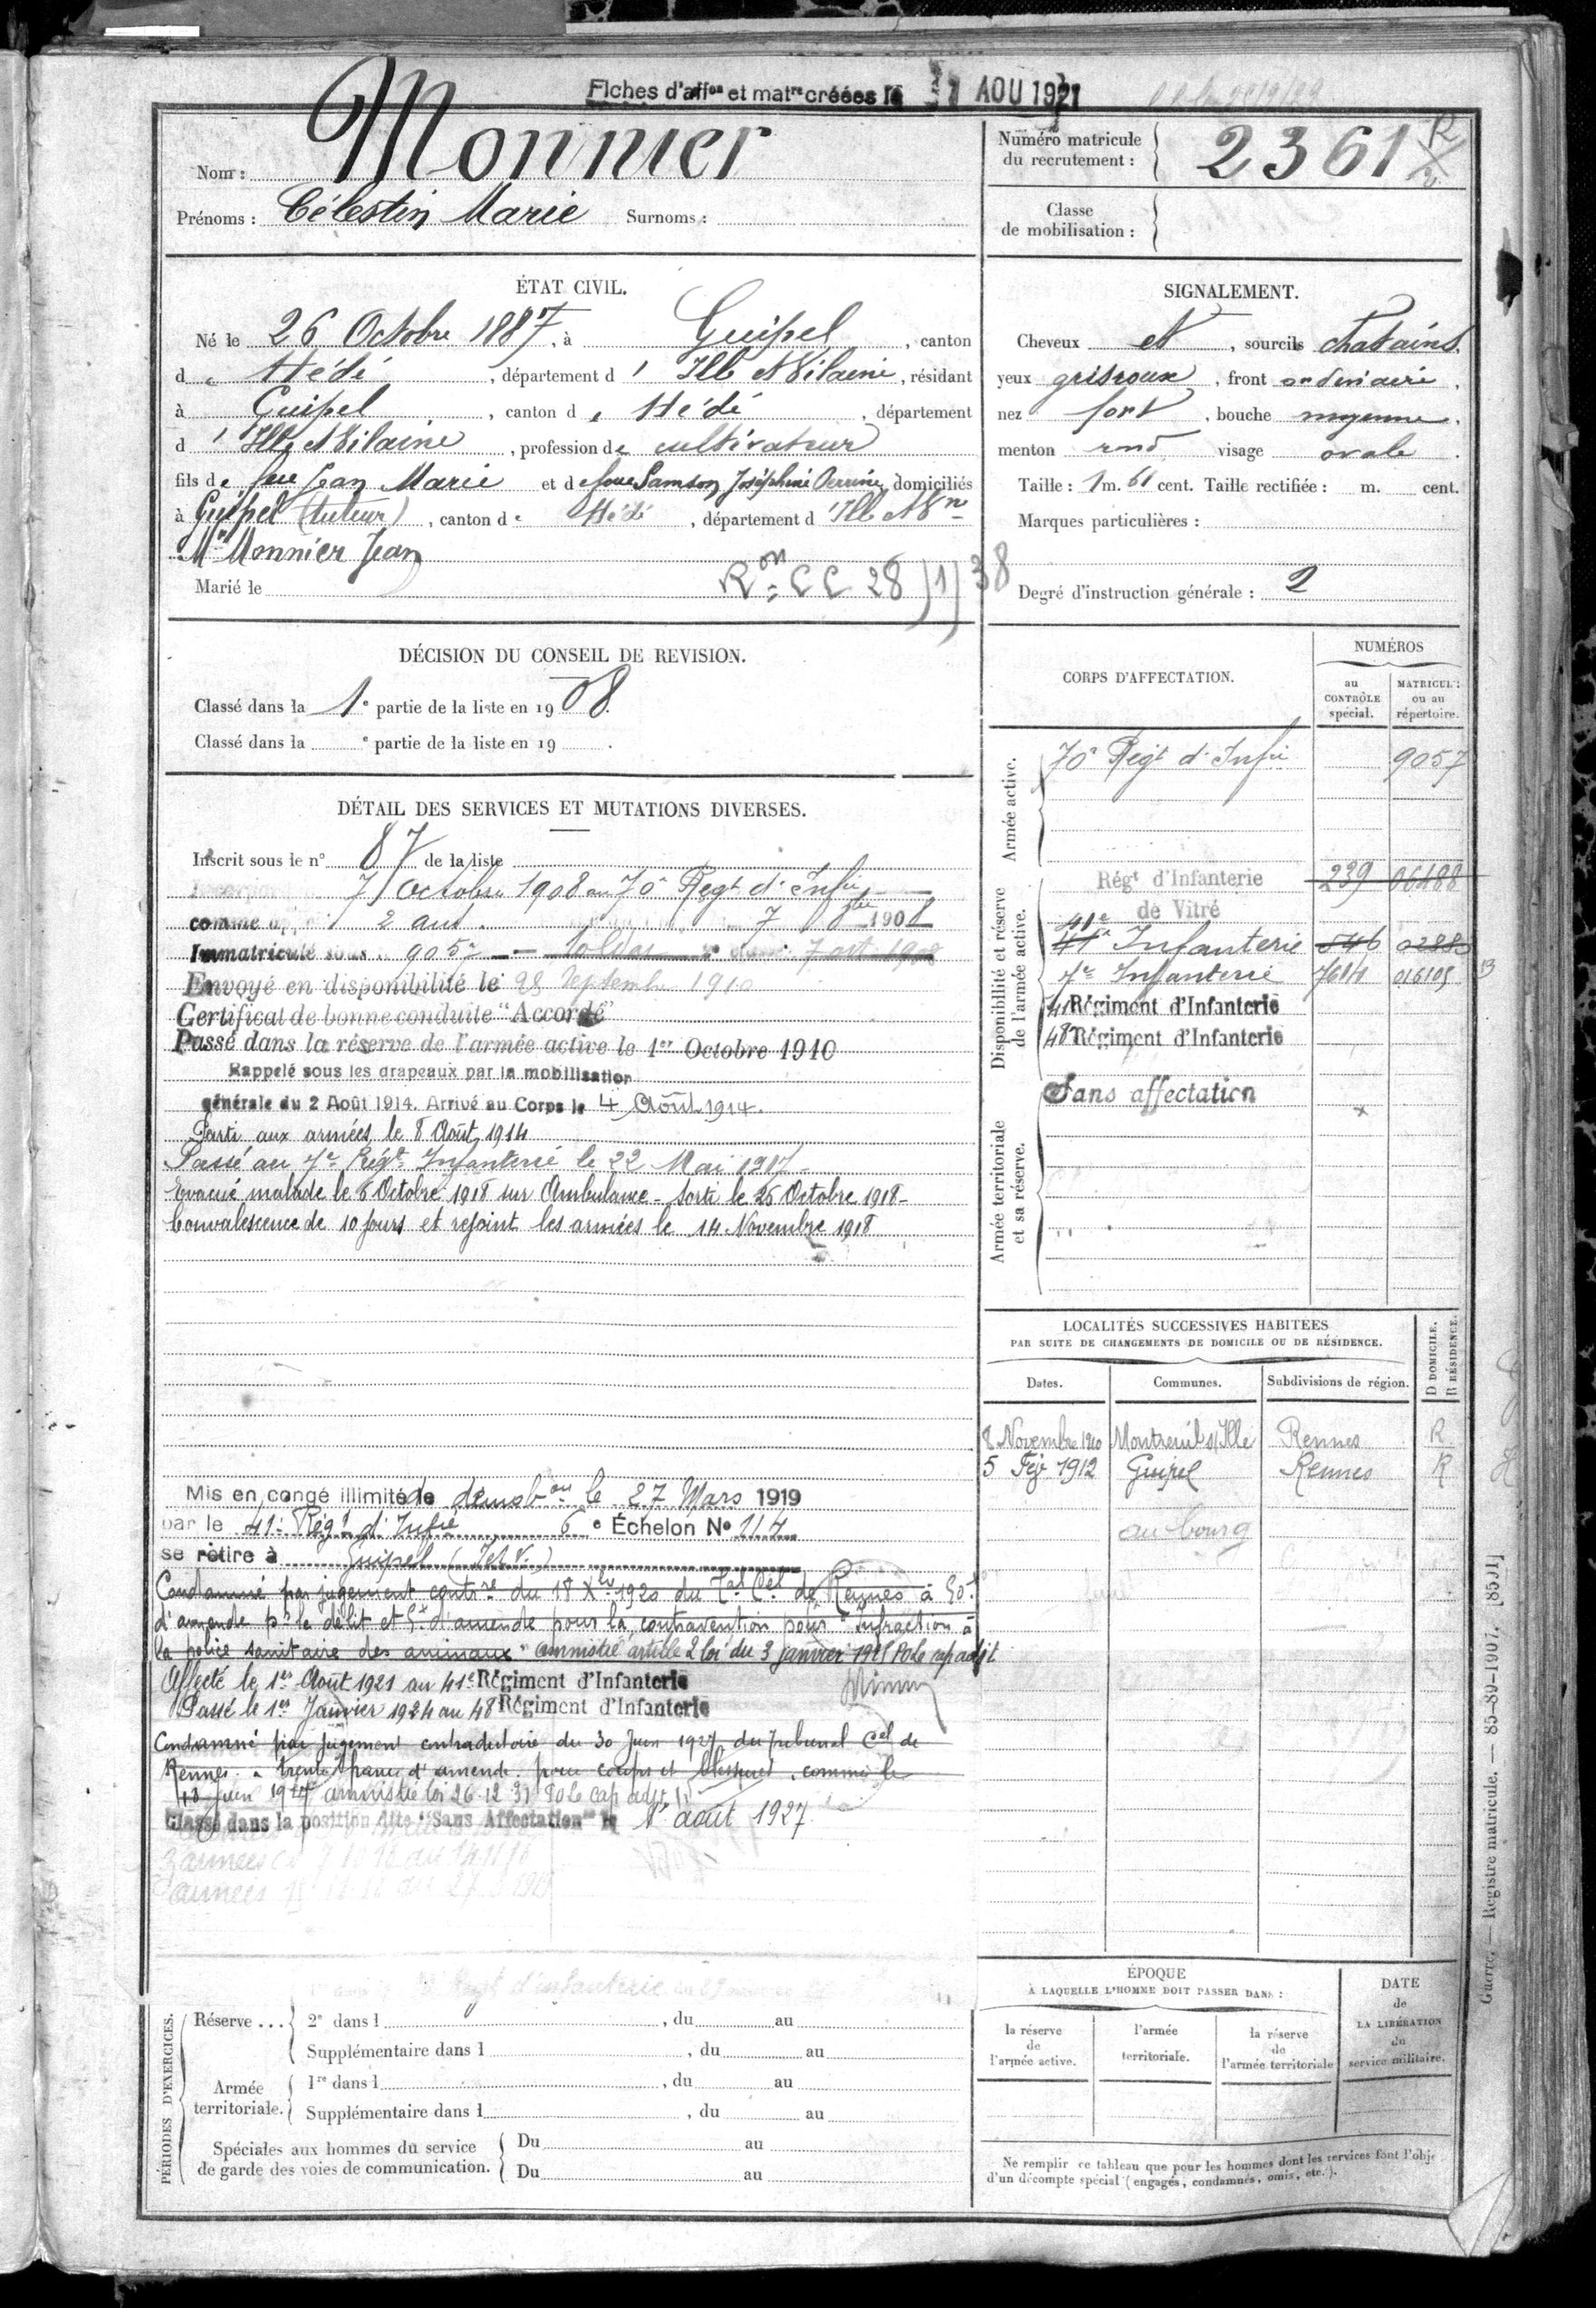 Fiches d'affon et matre créées le 1 AOU 1921
Nom : Monnier
Prénoms : Célestin Marie Surnoms :
Numéro matricule
du recrutement : 2361
Classe
de mobilisation :
ÉTAT CIVIL.
Né le 26 Octobre 1887, à Guipel, canton
de Hédé, département d'Ille et Vilaine, résidant
à Guipel, canton de Hédé, département
d'Ille et Vilaine, profession de cultivateur
fils de feu Jean Marie et de feue Samson Joséphine Perrine, domiciliés
à Guipel (tuteur), canton de Hédé, département d'Ille et Vne
Mr Monnier Jean
Marié le
Ron CC 28/1/38
SIGNALEMENT.
Cheveux et, sourcils chatains,
yeux gris roux, front ordinaire,
nez fort, bouche moyenne,
menton rond visage ovale.
Taille : 1 m. 61 cent. Taille rectifiée : m. cent.
Marques particulières :
Degré d'instruction générale : 2
DÉCISION DU CONSEIL DE REVISION.
Classé dans la 1e partie de la liste en 1908.
Classé dans la e partie de la liste en 19 .
CORPS D'AFFECTATION.
NUMÉROS
au
CONTRÔLE
spécial.
MATRICULE
ou au
répertoire.
Armée active.
70e Régt d'Infie 9057
Disponibilité et réserve
de l'armée active.
Régt d'Infanterie 239 06488
de Vitré
41e
41e Infanterie 546 0288
7e Infanterie 7614 016105
41 Régiment d'Infanterie
48 Régiment d'Infanterie
Sans affectation
Armée territoriale
et sa réserve.
DÉTAIL DES SERVICES ET MUTATIONS DIVERSES.
Inscrit sous le n° 87 de la liste
Incorporé 7 Octobre 1908 au 70e Régt d'Infie
comme 2 ans. 7 8bre 1908
Immatriculé sous 9057 Soldat 7 oct 1908
Envoyé en disponibilité le 28 Septembre 1910
Certificat de bonne conduite "Accordé"
Passé dans la réserve de l'armée active le 1er Octobre 1910
Rappelé sous les drapeaux par la mobilisation
générale du 2 Août 1914. Arrivé au Corps le 4 Août 1914.
Parti aux armées le 8 Août 1914
Passé au 7e Régt Infanterie le 22 Mai 1917-
Evacué malade le 6 Octobre 1918 sur Ambulance - Sorti le 25 Octobre 1918-
Convalescence de 10 jours et rejoint les armées le 14 Novembre 1918
Mis en congé illimité de démobon le 27 Mars 1919
par le 41e Régt d'Infie 6e Échelon N° 117
se retire à Guipel (I et V.)
Condamné par jugement contre du 18 Xbre 1920 du Tal Cel de Rennes à 50 f
d'amende pr le délit et 5 f d'amende pour la contravention pour "Infraction à
la police sanitaire des animaux" amnistié article 2 loi du 3 janvier 1925 Po le cap adjt
Affecté le 1er Août 1921 au 41e Régiment d'Infanterie
Passé le 1er Janvier 1924 au 48 Régiment d'Infanterie
Condamné par jugement contradictoire du 30 Juin 1927 du tribunal Cel de
Rennes à trente francs d'amende pour coups et blessures, commis le
13 juin 1927 amnistié loi 26.12.31 Po le cap adjt
Classé dans la position dite "Sans Affectation" le 1er août 1927
LOCALITÉS SUCCESSIVES HABITÉES
PAR SUITE DE CHANGEMENTS DE DOMICILE OU DE RÉSIDENCE.
Dates. Communes. Subdivisions de région. D DOMICILE. R RÉSIDENCE.
8 Novembre 1910 Montreuil s/Ille Rennes R
5 Fév 1912 Guipel Rennes R
au bourg
ÉPOQUE
À LAQUELLE L'HOMME DOIT PASSER DANS :
la réserve
de
l'armée active.
l'armée
territoriale.
la réserve
de
l'armée territoriale
DATE
de
LA LIBÉRATION
du
service militaire.
Ne remplir ce tableau que pour les hommes dont les services font l'obje
d'un décompte spécial (engagés, condamnés, omis, etc.).
PÉRIODES D'EXERCICES.
Réserve ... 2e dans l , du au
Supplémentaire dans l , du au
Armée
territoriale. 1re dans l , du au
Supplémentaire dans l , du au
Spéciales aux hommes du service
de garde des voies de communication. Du au
Du au
Guerre. — Registre matricule. — 85-89-1907. [8501]